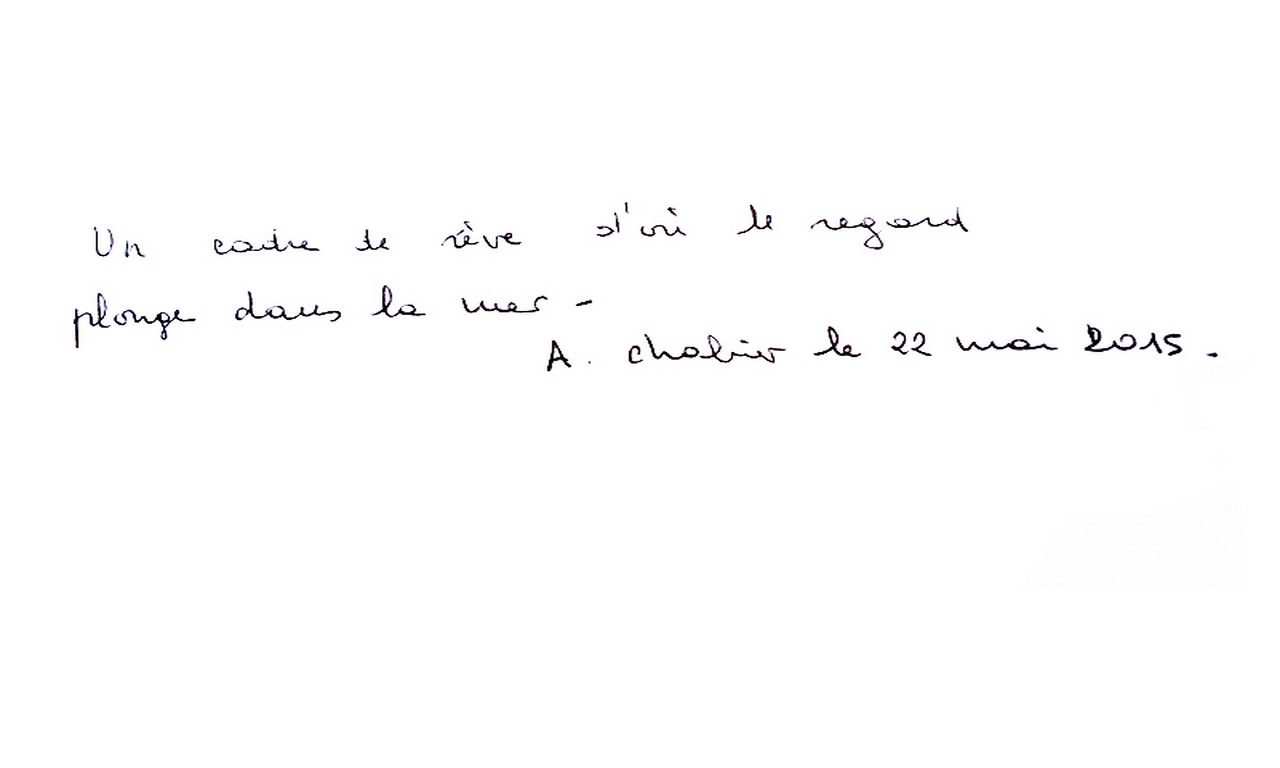 Un cadre de rêve d'où le regard
plonge dans la mer -
A. le 22 mai 2015.